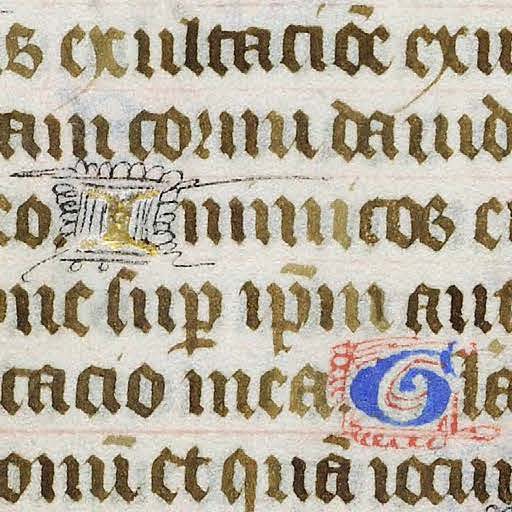 s exultaciõe exu
am cornu dauid
eo. Inimicos e
one sup ip̄m aut
tacio mea. Gla
onū et quā iocu